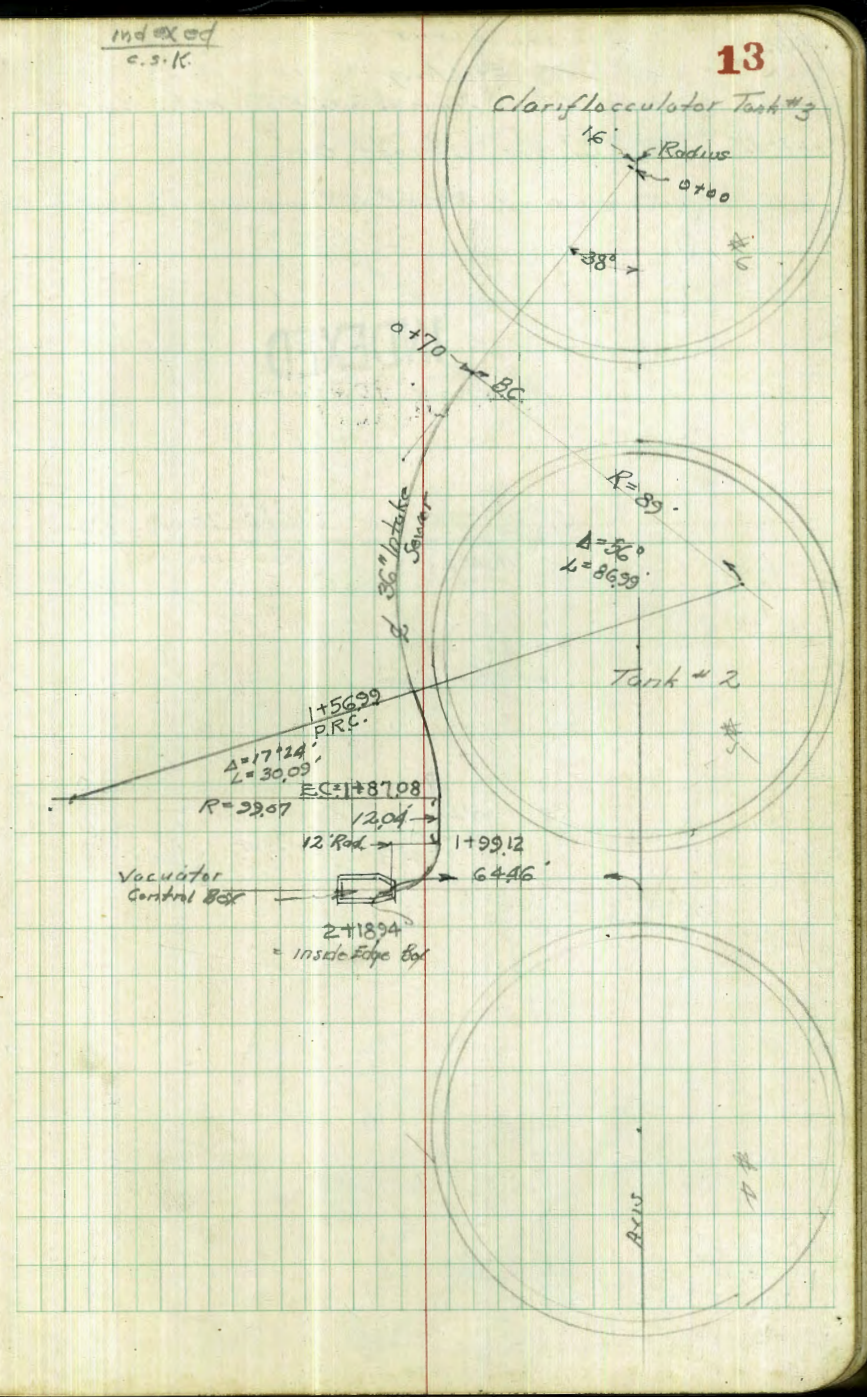 indexed
c.s.K.
13
Clariflocculator Tank #3
16'
Radius
0+00
#6
38°
0+70
B.C.
R=89'
Δ=56°
L=86.99'
℄ 36" Intake
Sewer
Tank # 2
#5
1+56.99
P.R.C.
Δ=17°24'
L=30.09'
E.C.=1+87.08
R=99.67
12.04'
12' Rad.
1+99.12
64.46'
Vacuator
Control Box
2+18.94
= Inside Edge Box
#4
Axis